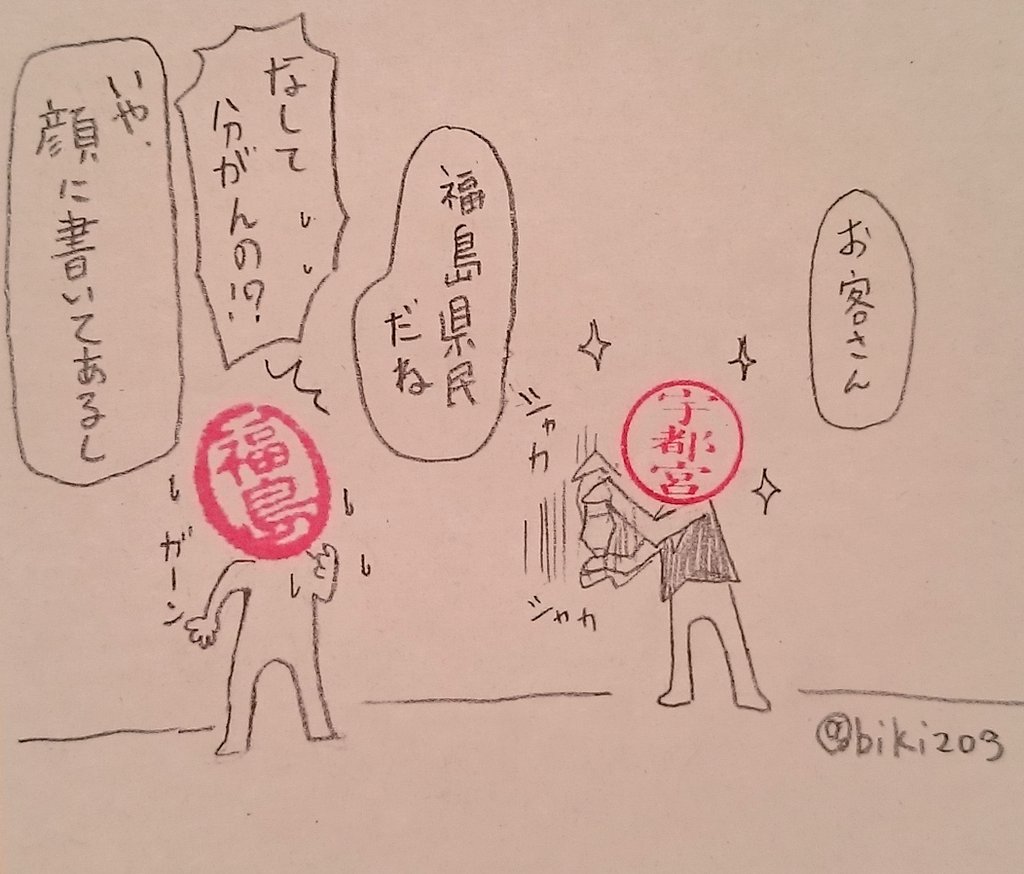 お客さん
福島県民
だね
なして
分がんの!?
いや、
顔に書いてあるし
宇都宮
福島
ジャカ
ジャカ
ガーン
@biki203